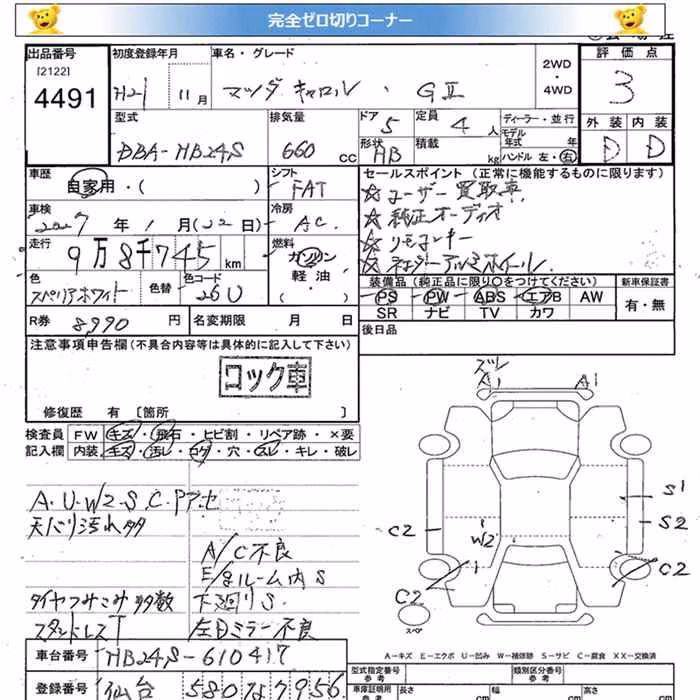 完全ゼロ切りコーナー
出品番号
[2122]
4491
初度登録年月
H21 11月
車名・グレード
マツダ キャロル、GⅡ
2WD
・
4WD
評価点
3
型式
DBA-HB24S
排気量
660 cc
ドア 5
定員 4 人
形状 HB
積載 kg
ディーラー・並行
モデル
年式 年
ハンドル 左・右
外装 内装
D D
車歴
自家用・( )
シフト
FAT
セールスポイント (正常に機能するものに限ります)
☆ユーザー買取車
☆純正オーディオ
☆リモコンキー
車検
2027年1月(22日)
冷房
AC
走行
9万8千745km
燃料
ガソリン
軽油・
( )
色
スペリアホワイト
色替
色コード
26U
装備品 (純正品に限り○をつけてください)
PS PW ABS エアB AW
SR ナビ TV カワ
新車保証書
有・無
R券 8,990円
名変期限 月 日
後日品
注意事項申告欄(不具合内容等は具体的に記入して下さい)
コック車
修復歴 有 [箇所 ]
検査員
記入欄
FW キズ・飛石・ヒビ割・リペア跡・×要
内装 キズ・汚レ・コゲ・穴・スレ・キレ・破レ
A・U・W2・S・C・Pア・セ
天バリ汚れ多
A/C不良
E/gルーム内S
タイヤつみこみ多数
下廻りS
スタッドレスT
左Dミラー不良
ズレ
A1 A1
S1
S2
C2
W2
1
C2
C2
スペア
A-キズ E-エクボ U-凹み W-補修跡 S-サビ C-腐食 XX-交換済
車台番号 HB24S-610417
登録番号 仙台 580 な 7956
型式指定番号
参考
類別区分番号
参考
車庫証明用
参考
長さ cm
幅 cm
高さ cm